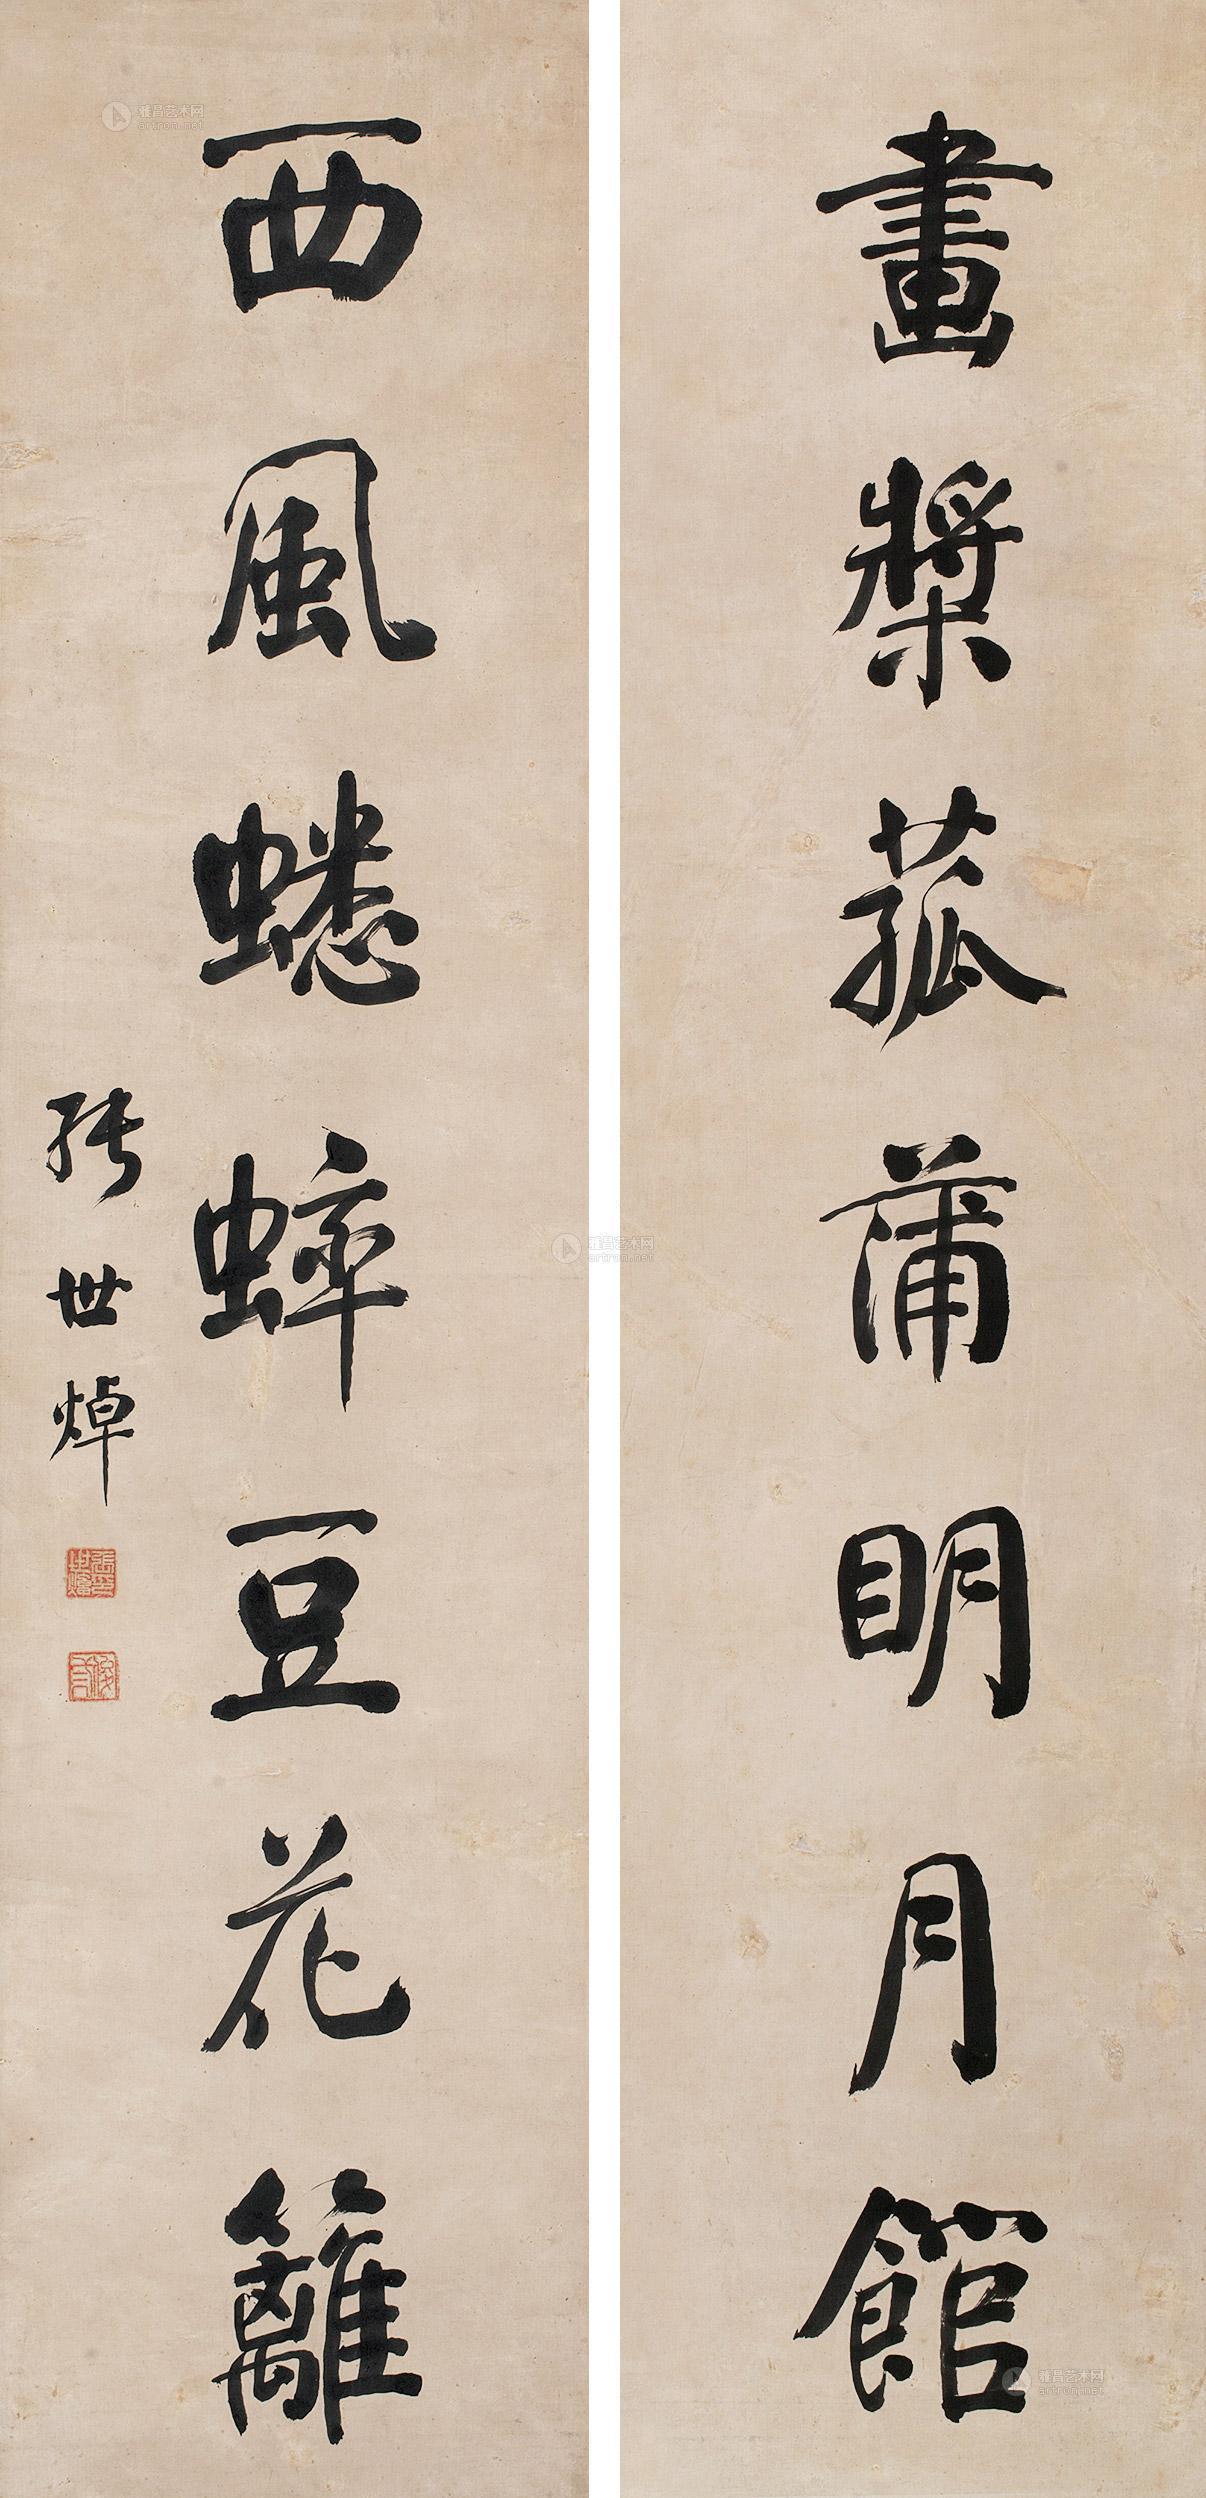 畫槳菰蒲明月館
西風蟋蟀豆花籬
張世焯
雅昌艺术网
artron.net
雅昌艺术网
artron.net
雅昌艺术网
artron.net